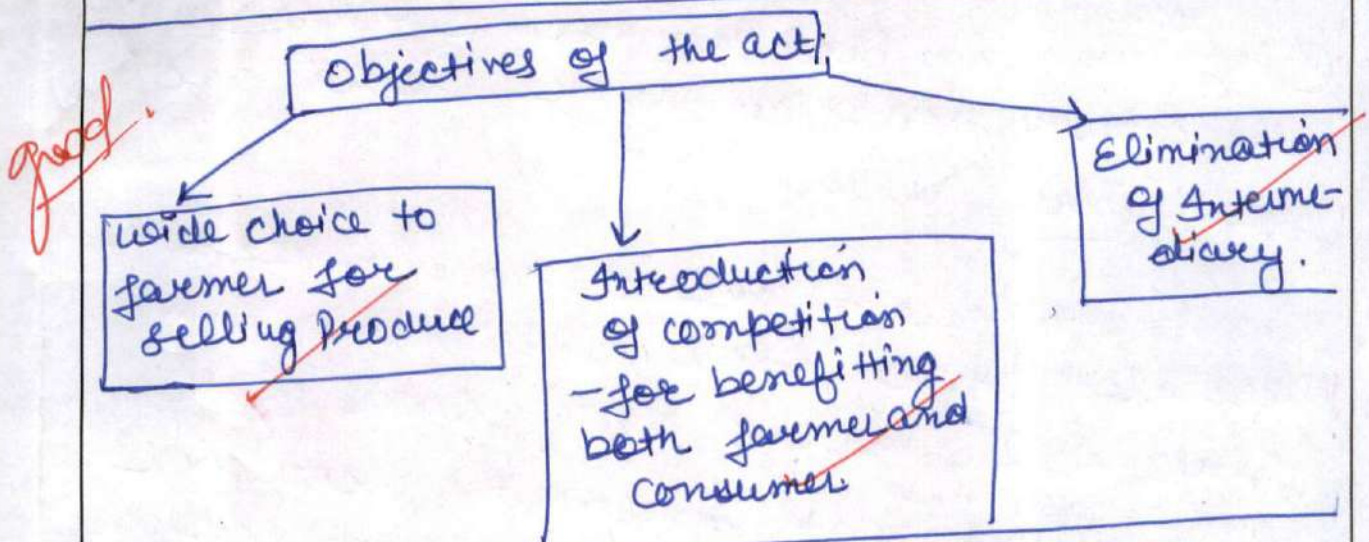 Objectives of the act
good.
wide choice to
farmer for
selling Produce
Introduction
of competition
- for benefitting
both farmer and
consumer
Elimination
of Interme-
diary.